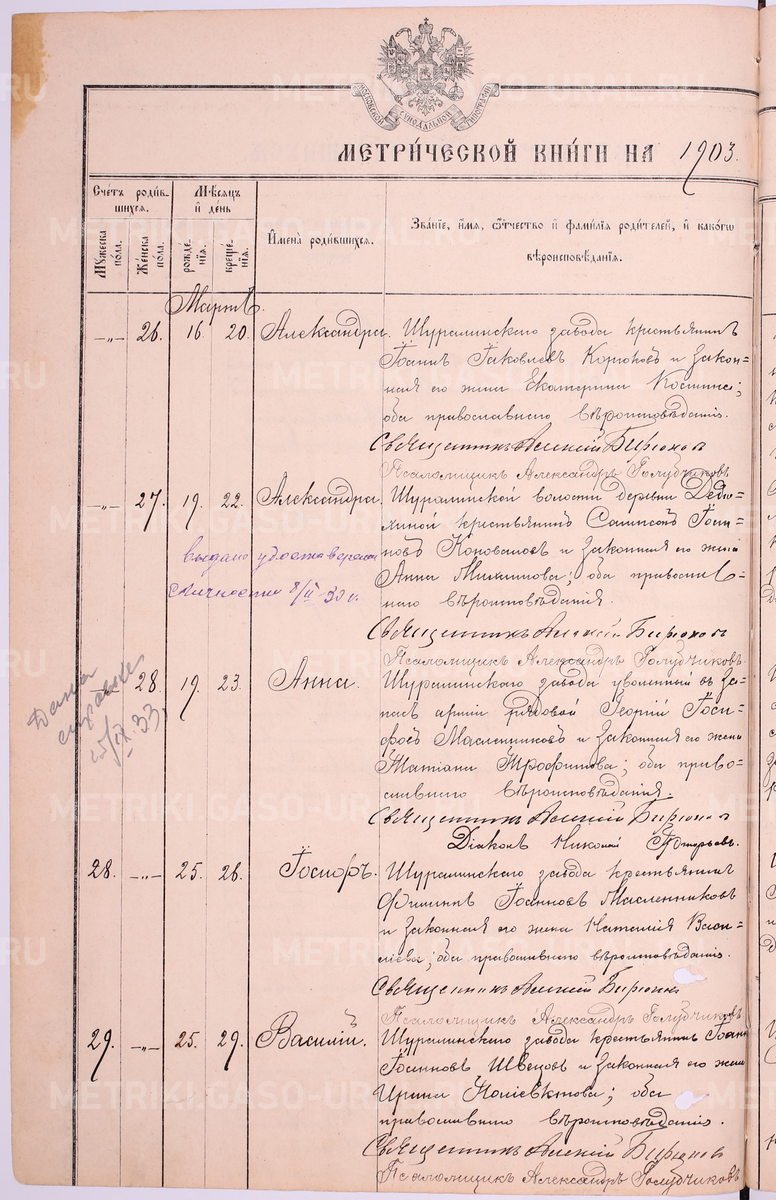 МОСКОВСКОЙ СѴНОДАЛЬНОЙ ТИПОГРАФІИ
МЕТРИ́ЧЕСКОЙ КНИ́ГИ НА 1903.
Сче́тъ роди́в-
шихся.
Мѣ́сяцъ
и҆ де́нь
И҆мена̀ роди́вшихся.
Зва́нїе, и҆́мя, ѻ҆́тчество и҆ фами́лїя роди́телей, и҆ како́гѡ
вѣроисповѣ́данїя.
Мꙋ́жеска по́ла.
Же́нска по́ла.
рожде́-
нїя.
креще́-
нїя.
Мартъ.
-„- 26. 16. 20. Александра. Шуралинскаго завода крестьянинъ
Іоаннъ Іаковлевъ Корюковъ и закон=
ная его жена Екатерина Косьмина;
оба православнаго вѣроисповѣданія.
Священникъ Алексій Бирюковъ
Псаломщикъ Александръ Голубчиковъ
-„- 27. 19. 22. Александра. Шуралинской волости деревни
крестьянинъ Самсонъ
Коноваловъ и законная его жена
Анна Никитина; оба православ-
наго вѣроисповѣданія.
выдано удостоверение
личности 8/II 30 г.
Священникъ Алексій Бирюковъ
Псаломщикъ Александръ Голубчиковъ.
28. 19. 23. Анна. Шуралинскаго завода уволенный въ за-
пасъ арміи рядовой Георгій Іоси-
фовъ Масленниковъ и законная его жена
Татіана Трофимова; оба право-
славнаго вѣроисповѣданія.
Дана
справка
IX 33
Священникъ Алексій Бирюковъ
Діаконъ Николай
28. -„- 25. 26. Іосифъ. Шуралинскаго завода крестьянинъ
Филиппъ Іоанновъ Масленниковъ
и законная его жена Наталія Васи=
ліева; оба православнаго вѣроисповѣданія.
Священникъ Алексій Бирюковъ
Псаломщикъ Александръ Голубчиковъ
29. -„- 25. 29. Василій. Шуралинскаго завода крестьянинъ Іоаннъ
Іоанновъ Швецовъ и законная его жена
Ирина; оба
православнаго вѣроисповѣданія.
Священникъ Алексій Бирюковъ
Псаломщикъ Александръ Голубчиковъ
METRIKI.GASO-URAL.RU